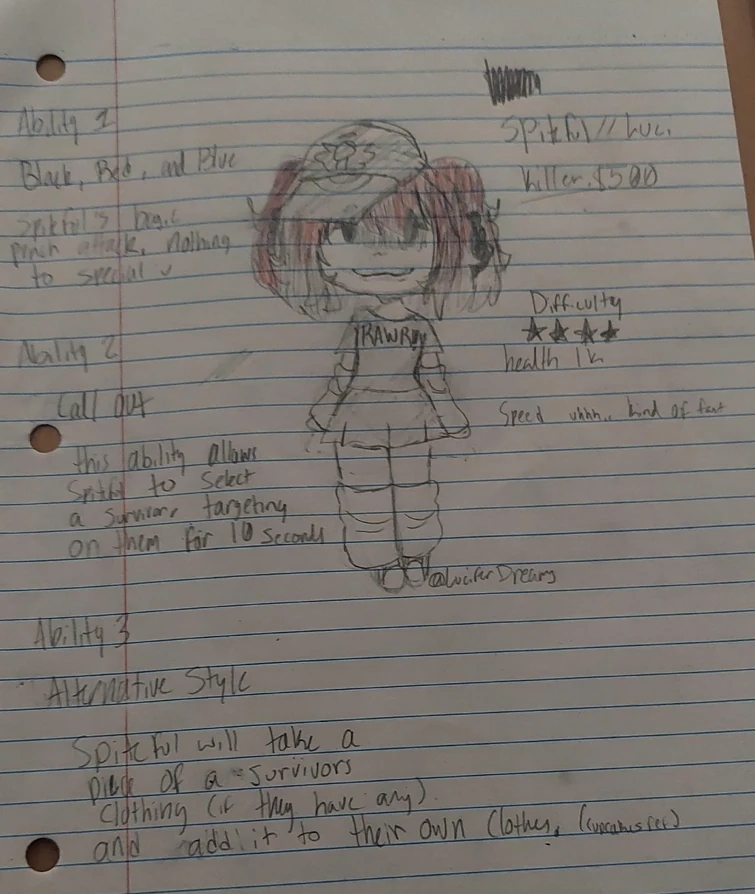 Ability 1
Black, Red, and Blue
Spitful's basic
punch attack, nothing
to special
Ability 2
Call out
this ability allows
Spitful to select
a survivor, targeting
on them for 10 seconds
Ability 3
Alternative Style
Spiteful will take a
piece of a survivors
clothing (if they have any).
and add it to their own clothes.
Spitful // Luci.
killer. $500
RAWR
Difficulty
★★★★
health 1k
Speed uhhh.. kind of fast
@LuciferDreams